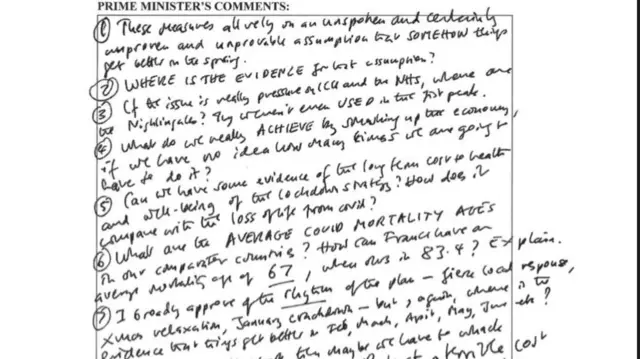 PRIME MINISTER'S COMMENTS:
① These measures all rely on an unspoken and certainly
unproven and unprovable assumption that SOMEHOW things
get better in the spring.
② WHERE IS THE EVIDENCE for that assumption?
③ If the issue is really pressure on ICU and the NHS, where are
the Nightingales? They weren't even USED in the first peak.
④ What do we really ACHIEVE by smashing up the economy,
if we have no idea how many times we are going to
have to do it?
⑤ Can we have some evidence of the long term cost to health
and well-being of the lockdown strategy? How does it
compare with the loss of life from covid?
⑥ What are the AVERAGE COVID MORTALITY AGES
in our comparator countries? How can France have an
average mortality age of 67, when ours is 83.4? Explain.
⑦ I broadly approve of the rhythm of the plan – fierce local response,
xmas relaxation, January crackdown – but, again, where is the
evidence that things get better in Feb, March, April, May, June etc?
then maybe we have to whack
a terrible cost